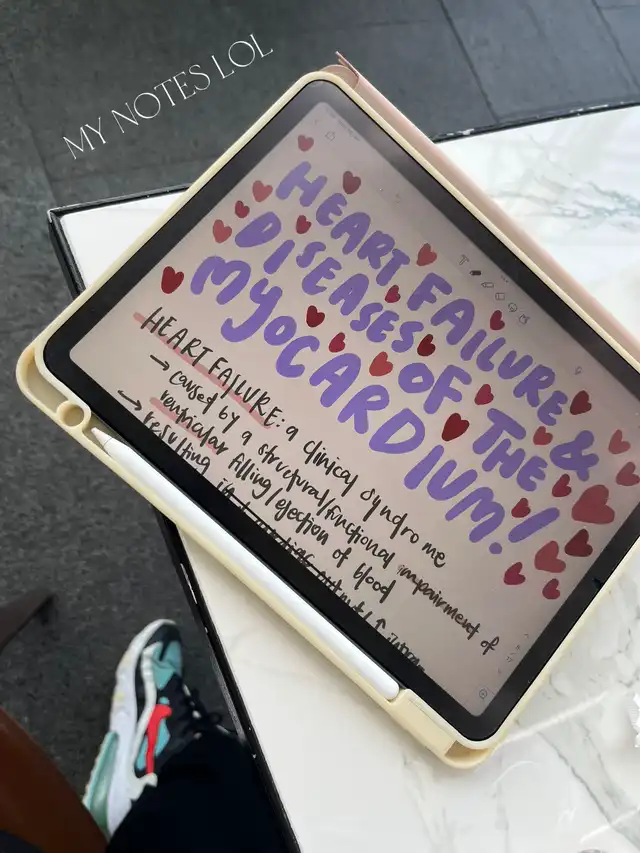 MY NOTES LOL
HEART FAILURE &
DISEASES OF THE
MYOCARDIUM!
HEART FAILURE: a clinical syndrome
→ caused by a structural/functional impairment of
ventricular filling/ejection of blood
→ resulting in